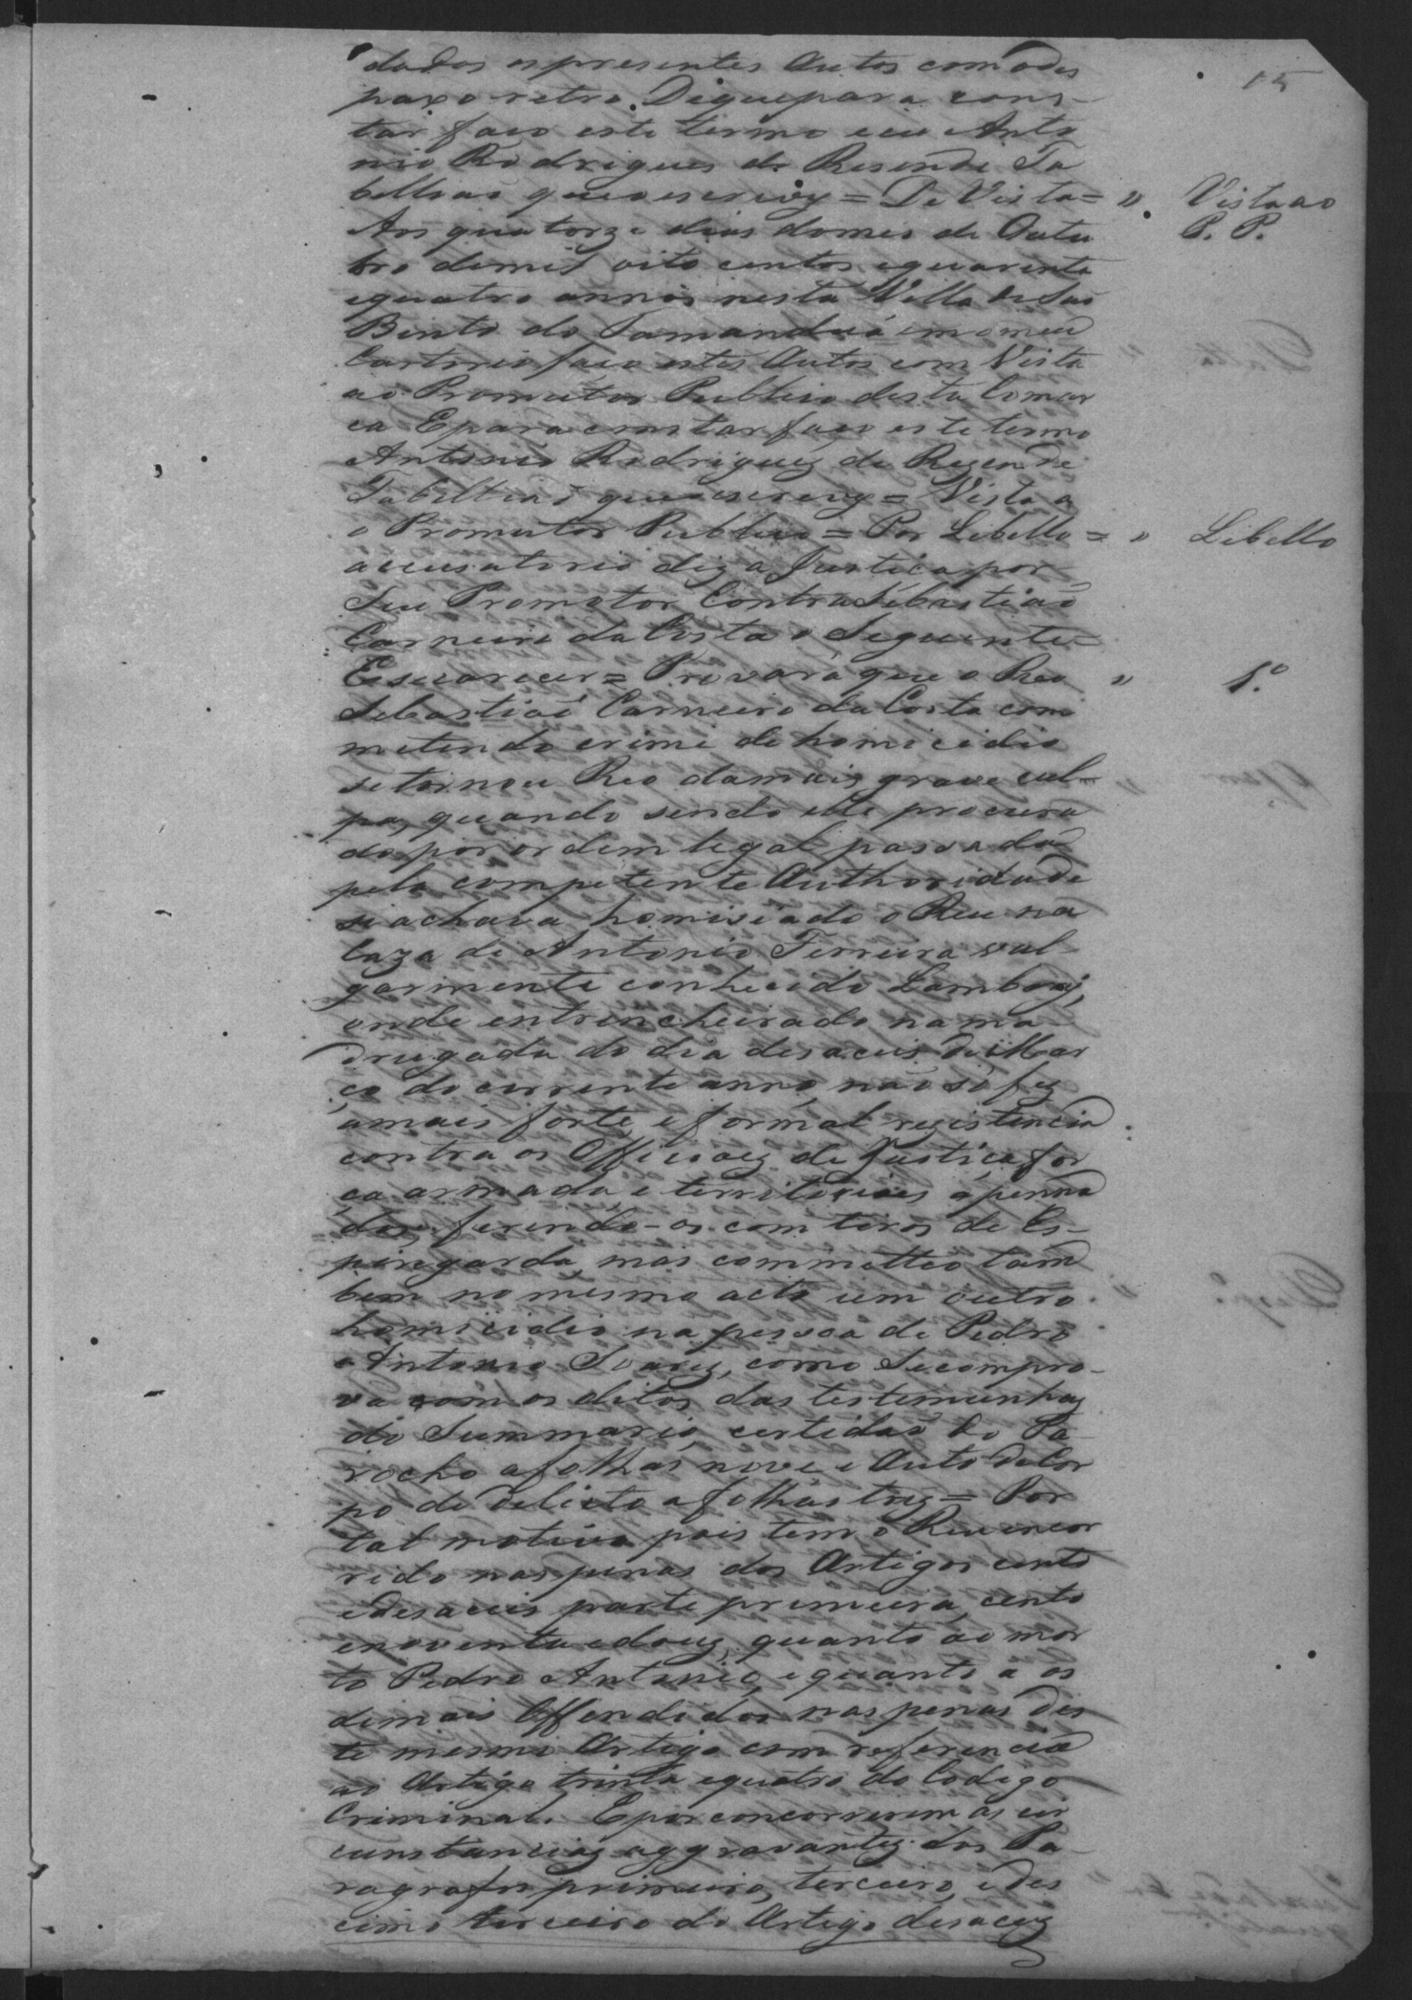 15
dados os presentes Autos com o des
paxo retro. De que para cons-
tar faco este termo e eu Anto
nio Rodrigues de Resende Ta
belliaõ que o escrevy = De Vista = "
Vista ao
P. P.
Aos quatorze dias do mes de Outu
bro de mil oito centos e quarenta
e quatro annos nesta Villa de Saõ
Bento do Tamanduá em o meu
Cartorio faço estes Autos com Vista
ao Promutor Publico desta Comar
ca E para constar faço este termo
Antonio Rodrigues de Rezende
Tabelliaõ que o escrevy = Vista a
o Promutor Publico = Por Libello = "
Libello
accusatorio diz a Justiça por
seu Promotor Contra Sebastiaõ
Carneiro da Costa o Seguinte =
Esclarecer = Provará que o Reo "
1.º
Sebastiaõ Carneiro da Costa com
metendo crime de homicidio
se tornou Reo da mais grave cul-
pa, quando sendo elle procura
do por ordem legal passada
pela competente Authoridade
si achava homisiado o Reu na
Caza de Antonio Ferreira vul-
garmente conhecido Lambary,
onde entrincheirado na ma-
drugada do dia desaceis de Mar
ço do corrente anno, não só fez
a mais forte, e formal rezistencia
contra os Officiaez de Justiça, for
ça armada, e territoriaes apenna
dos, ferindo-os com tiros de Es-
pingarda, mas committeo tam
bem no mesmo acto um outro
homicidio na pessoa de Pedro
Antonio Soarez, como se compro-
va com os ditos das testemunhaz
do Summario, certidaõ do Pa-
rocho a folhas nove, e Auto de Cor
po de delicto a folhas trez = Por
tal motivo pois tem o Reu encor
rido nas penas dos Artigos cento
e desaceis parte primeira, cento
e noventa e dous, quanto ao mor
to Pedro Antonio, e quanto a os
dimais Offendidos nas penas des
te mesmo Artigo com referencia
ao Artigo trinta e quatro do Codigo
Criminal. E por concorrerem as cir
cunstanciaz aggravantez dos Pa-
ragrafos primeiro, terceiro, e des
cimo terceiro do Artigo desacez